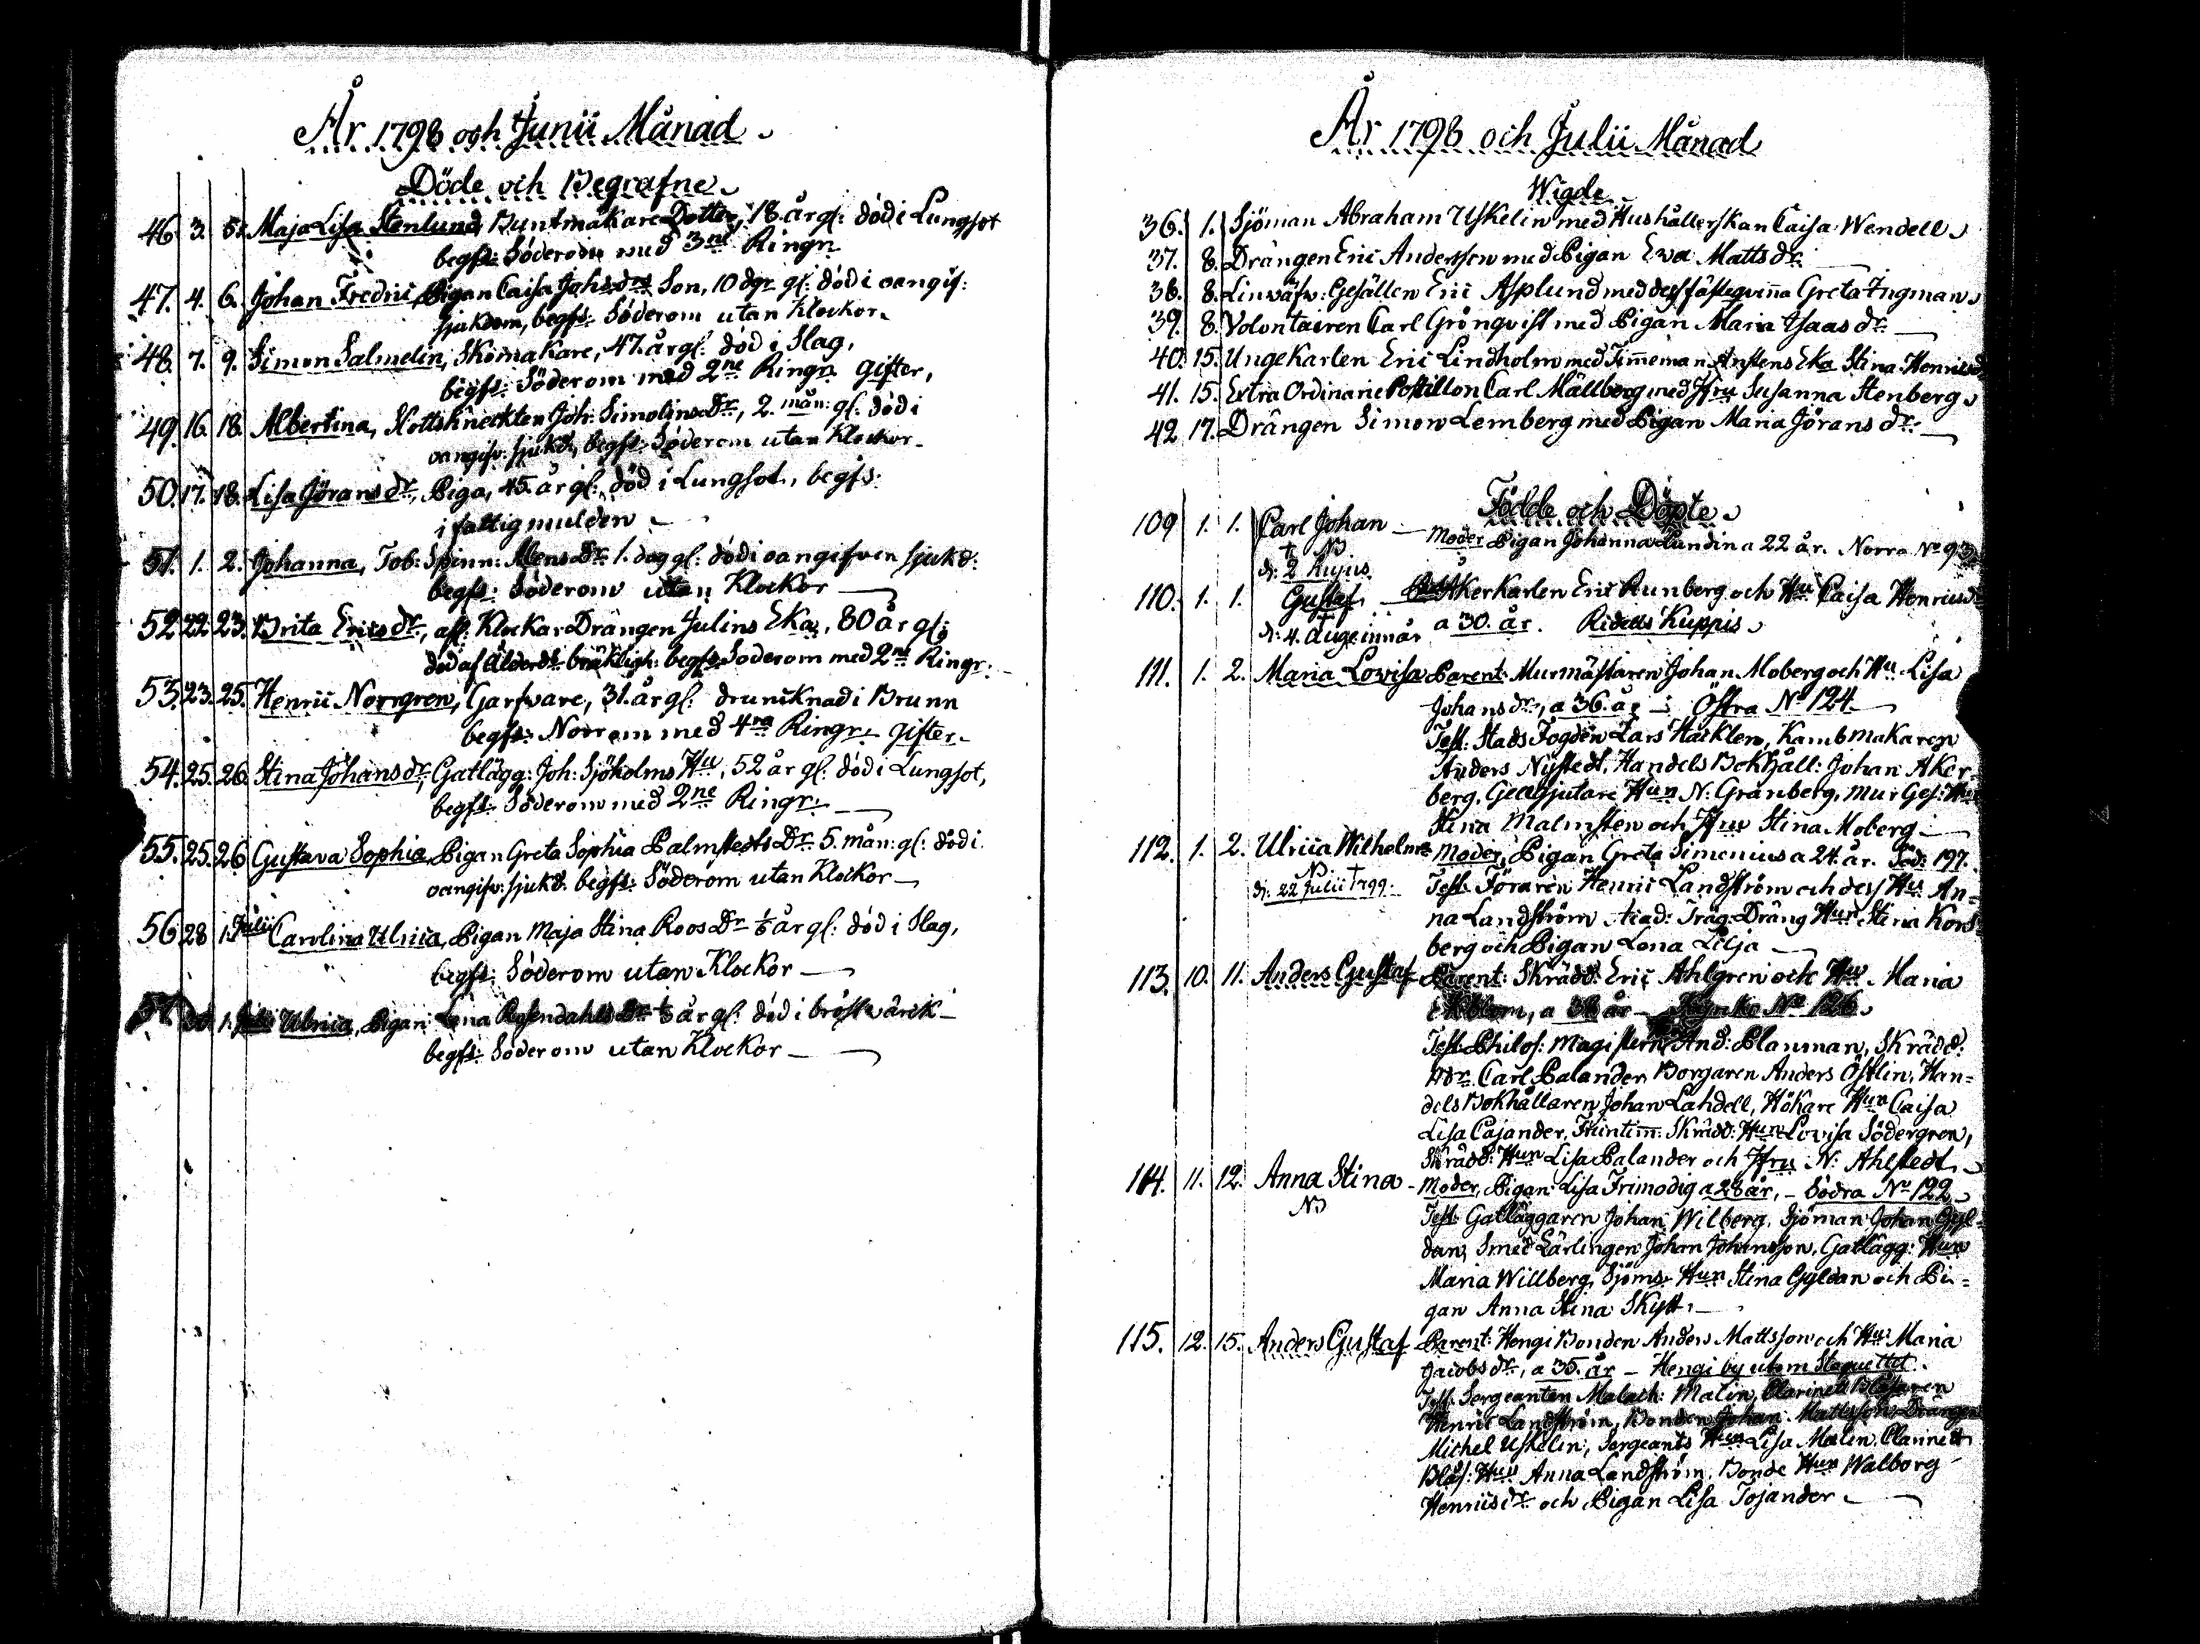 År 1798 och Junii Månad
Döde och Begrafne
46. 3. 5. Maja Lisa Stenlund, Buntmakare Dotter, 18. år gl: död i Lungsot
begfs: Söderom med 3ne Ringn:
47. 4. 6. Johan Fredric, Pigan Caisa Johsdrs Son, 10 dgr gl: död i oangif:
sjukdom, begfs: Söderom utan Klockor
48. 7. 9. Simon Salmelin, Skomakare, 47. år gl: död i Slag,
begfs: Söderom med 2ne Ringn: gifter,
49. 16. 18. Albertina, Joh: Simolins Dr, 2. mån: gl: död i
oangifv: sjukd: begfs: Söderom utan Klockor
50. 17. 18. Lisa Jörans dr, Piga, 45. år gl: död i Lungsot, begfs:
i fattigmulden
51. 1. 2. Johanna, Tob: Spinn: Alens Dr 1. dag gl: död i oangifven sjukd:
begfs: Söderom utan Klockor
52. 22. 23. Brita Erics dr, afl: Klockar Drängen Julins Eka, 80 år gl:
död af ålderds bräkligh: begfs: Söderom med 2ne Ringr:
53. 23. 25. Henric Norrgren, Garfvare, 31. år gl: drunknad i Brunn
begfs: Norrom med 4ra Ringr: gifter
54. 25. 26. Stina Johans dr, Gatlägg: Joh: Sjöholms Hu, 52 år gl: död i Lungsot,
begfs: Söderom med 2ne Ringr:
55. 25. 26. Gustava Sophia, Pigan Greta Sophia Palmstedts Dr. 5. mån: gl: död i
oangifv: sjukd: begfs: Söderom utan Klockor
56. 28 1. Julii Carolina Ulrica, Pigan Maja Stina Roos Dr ½ år gl: död i Slag,
begfs: Söderom utan Klockor
57. 1. Julii Ulrica, Pigan Lena Rosendahls Dr ½ år gl: död i bröstvärck
begfs: Söderom utan Klockor
År 1798 och Julii Månad
Wigde
36. 1. Sjöman Abraham Uskelin med Hushållerskan Caisa Wendell
37. 8. Drängen Eric Andersson med Pigan Ewa Matts dr
38. 8. Linväfv: Gesällen Eric Asplund med dess fästeqvinna Greta Ingman
39. 8. Volontairen Carl Grönqvist med Pigan Maria Isaas dr
40. 15. Unge Karlen Eric Lindholm med Timmeman Anstens Eka Stina Henricsdr
41. 15. Extra Ordinarie Postillon Carl Mällberg med Jfru Susanna Stenberg
42 17. Drängen Simon Lemberg med Pigan Maria Jörans dr
Födde och Döpte
109 1. 1. Carl Johan Moder Pigan Johanna Lundin a 22 år. Norra No 93
d: 2 hujus.
110. 1. 1. Gustaf Åkerkarlen Eric Runberg och Hu Caisa Henricsdr
d: 4. a 30. år. Ridells Kuppis
111. 1. 2. Maria Lovisa Parent: Murmästaren Johan Moberg och Hu Lisa
Johans dr, a 36. år Östra No 124
Test: Stads Fogden Lars Häcklen, Kambmakaren
Anders Nystedt, Handels Bokhåll: Johan Åker-
berg, Gevagjutare Hun N: Granberg, Mur Ges: Hun
Stina Malmsten och Jfru Stina Moberg
112. 1. 2. Ulrica Wilhelmi Moder, Pigan Greta Simenius a 24 år. Söd: 197.
d: 22 Julii 1799. Test: Föraren Henric Landström och dess Hu An-
na Landström, Träg: Dräng Hun Stina Kors-
berg och Pigan Lena Lilja
113. 10. 11. Anders Gustaf Parent: Skrädd: Eric Ahlgren och Hu Maria
Ekblom, a 38 år No 126
Test: Philos: Magistern And: Planman, Skrädd:
Carl Palander, Borgaren Anders Östlin, Han-
dels Bokhållaren Johan Lahdell, Hökare Hun Caisa
Lisa Cajander, Skrädd: Hun Lovisa Södergren,
Skrädd: Hun Lisa Palander och Jfru N: Ahlstedt
114. 11. 12. Anna Stina Moder, Pigan Lisa Frimodig a 28 år, Södra No 122
Test: Gatläggaren Johan Wilberg, Sjöman Johan Gyl-
dan, Smed Lärlingen Johan Johansson, Gatlägg: Hun
Maria Willberg, Sjöms: Hun Stina Gyldan och Pi-
gan Anna Stina Skytt
115. 12. 15. Anders Gustaf Parent: Hengi Bonden Anders Mattsson och Hu Maria
Jacobs dr, a 35. år Hengi by utom Staquettet
Test: Sergeanten Malach: Malin, Clarinett Blåsaren
Henric Landström, Bonden Johan Mattsson, Drängen
Michel Uskelin, Sergeants Hun Lisa Malin, Clarinett
Blås: Hun Anna Landström, Bonde Hun Walborg
Henrics dr och Pigan Lisa Tojander